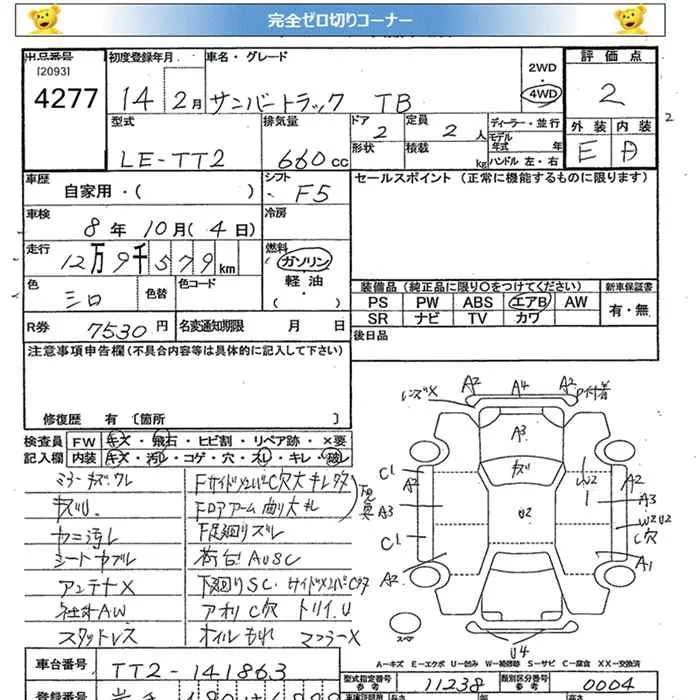 完全ゼロ切りコーナー
出品番号 [2093] 4277
初度登録年月 14 2月
車名・グレード サンバートラック TB
2WD・4WD
評価点 2
外装 E 内装 D
型式 LE-TT2
排気量 660cc
ドア 2
定員 2人
ディーラー・並行
モデル年式 年
形状 積載 kg
ハンドル 左・右
車歴 自家用・( )
シフト F5
セールスポイント (正常に機能するものに限ります)
車検 8年10月(4日)
冷房
走行 12万9千579km
燃料 ガソリン 軽油 ( )
色 シロ 色替 色コード
装備品 (純正品に限り○をつけてください)
新車保証書 有・無
PS PW ABS エアB AW
SR ナビ TV カワ
R券 7530円 名変通知期限 月 日
後日品
注意事項申告欄 (不具合内容等は具体的に記入して下さい)
修復歴 有 〔箇所 〕
検査員記入欄
FW キズ・飛石・ヒビ割・リペア跡・×要
内装 キズ・汚レ・コゲ・穴・スレ・キレ・破レ
ミラーガズワレ
キズU.
カニ汚し
シートカブル
アンテナX
社外AW
スタッドレス
F足廻りズレ
荷台AUSC
アオリC穴 トリイU
オイルもれ マフラーX
レンズX
A2 A4 A2
A3
C1 A2
A3
C1
A2
U2
W2
A2
A3
W2U2
C穴
A1
U4
スペア
A-キズ E-エクボ U-凹み W-補修跡 S-サビ C-腐食 XX-交換済
車台番号 TT2-141863
型式指定番号 参考 11238
類別区分番号 参考 0004
登録番号